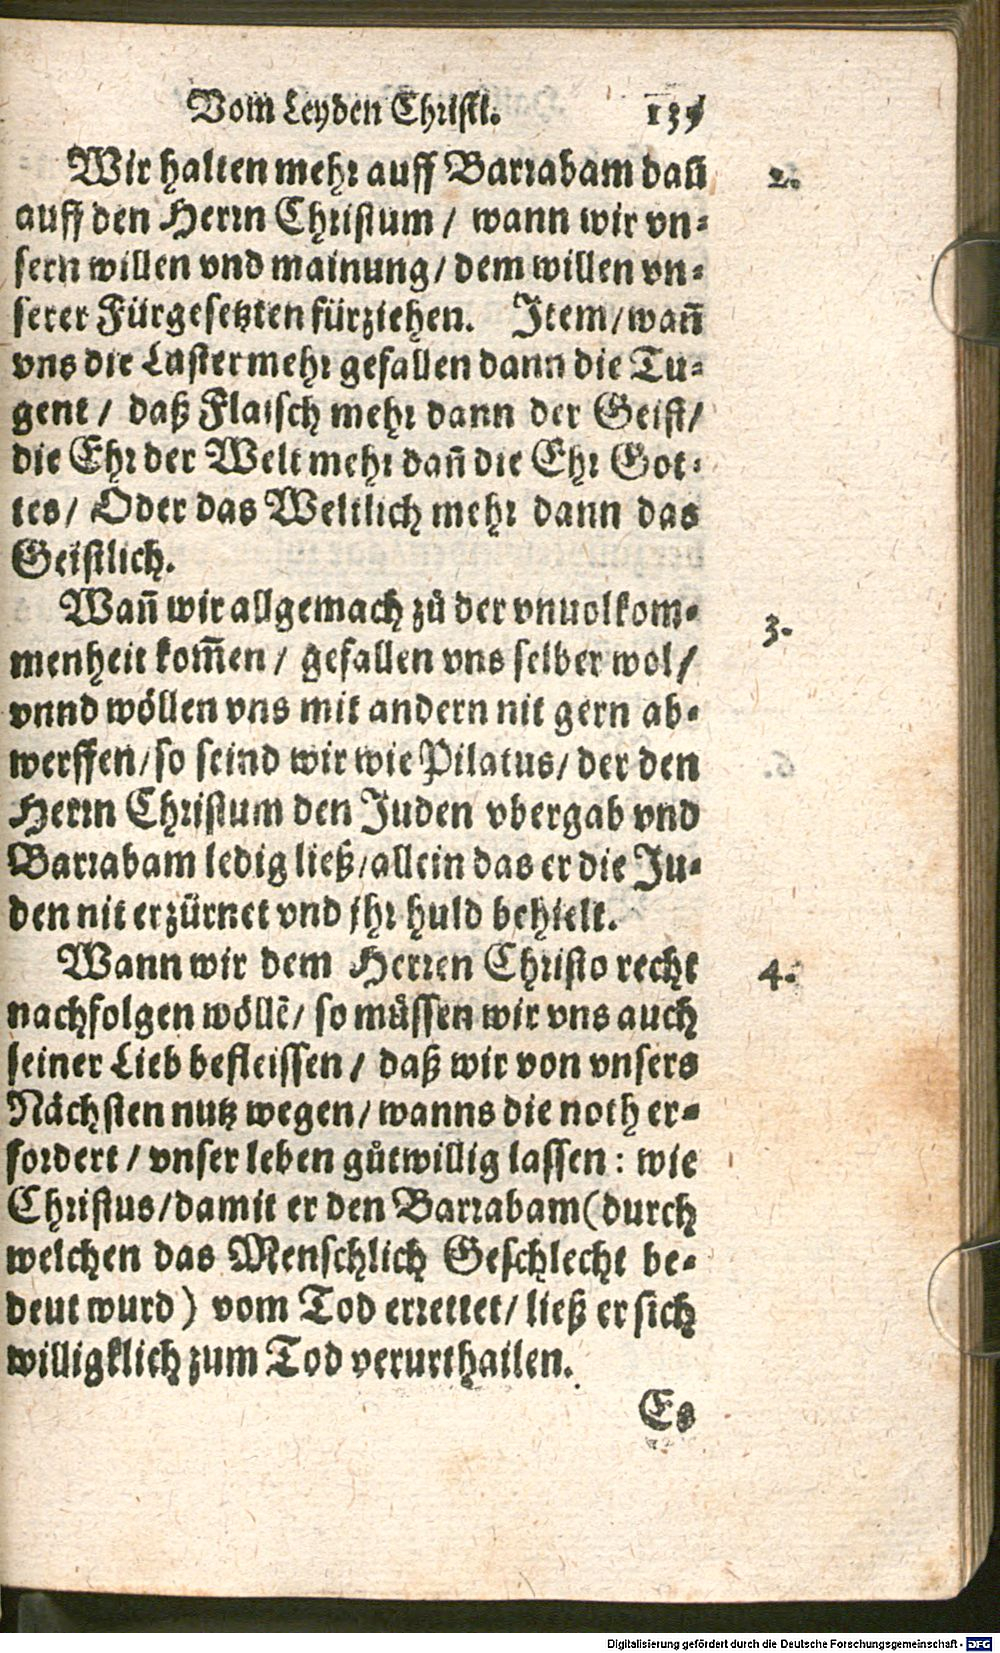 Vom Leyden Christi. 139
Wir halten mehr auff Barrabam dañ 2.
auff den Herrn Christum / wann wir vn-
sern willen vnd mainung / dem willen vn-
serer Fürgesetzten fürziehen. Item / wañ
vns die Laster mehr gefallen dann die Tu-
gent / daß Flaisch mehr dann der Geist /
die Ehr der Welt mehr dañ die Ehr Got-
tes / Oder das Weltlich mehr dann das
Geistlich.
Wañ wir allgemach zů der vnuolkom- 3.
menheit kom̃en / gefallen vns selber wol /
vnnd wöllen vns mit andern nit gern ab-
werffen / so seind wir wie Pilatus / der den
Herrn Christum den Juden vbergab vnd
Barrabam ledig ließ / allein das er die Ju-
den nit erzürnet vnd jhr huld behielt.
Wann wir dem Herren Christo recht 4.
nachfolgen wöllē / so müssen wir vns auch
seiner Lieb befleissen / daß wir von vnsers
Nächsten nutz wegen / wanns die noth er-
fordert / vnser leben gůtwillig lassen : wie
Christus / damit er den Barrabam (durch
welchen das Menschlich Geschlecht be-
deut wurd) vom Tod errettet / ließ er sich
willigklich zum Tod verurthailen.
Es
Digitalisierung gefördert durch die Deutsche Forschungsgemeinschaft - DFG